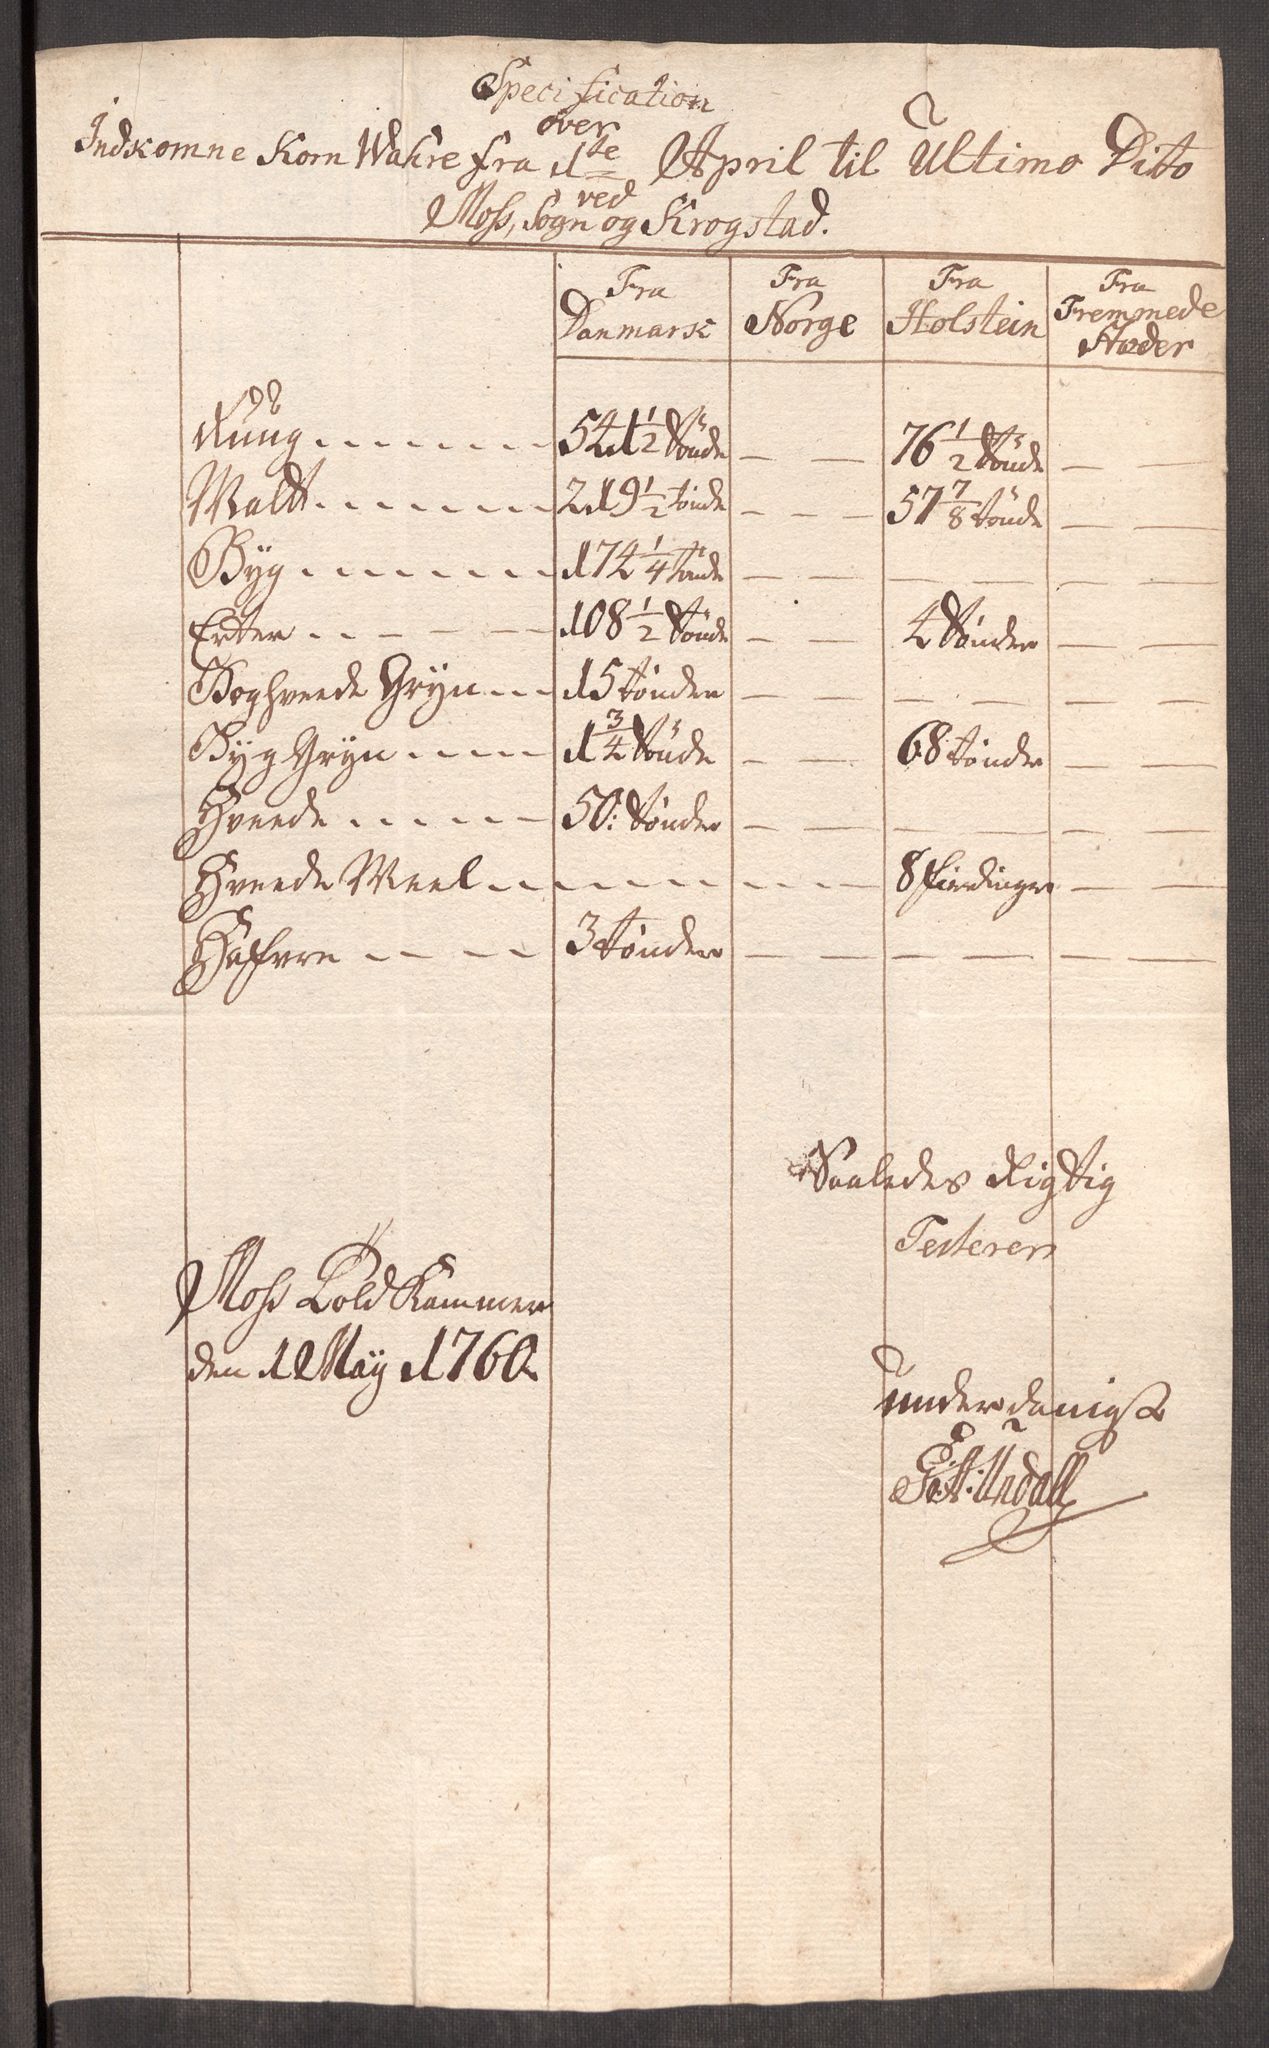 Specification
over
Indkomne Korn Wahre fra 1te April til Ultimo Dito
ved
Moss, Sogn og Krogstad.
Fra Danmark Fra Norge Fra Holstein Fra Fremmede Stæder
Rŭŭg 541 1/2 Tönde — — 76 1/2 Tönde — —
Maltt 219 1/2 tönde — — — 57 7/8 tönde — —
Bÿg 174 1/4 tönde — — — — — — —
Erter 108 1/2 Tönde — — 4 Tønder — —
Boghveede Grÿn 15 tønder — — — — — — —
Bÿg Grÿn 1 3/4 Tönde — — 68 tønder — —
Hveede 50: Tønder — — — — — — —
Hveede Meel 8 fierdinger — —
Haffvre 3 tønder — — — — — — —
Saaledes Rigtig
Testerer
Moss Told Kammer
den 1 Maÿ 1760
underdanigst
Undall